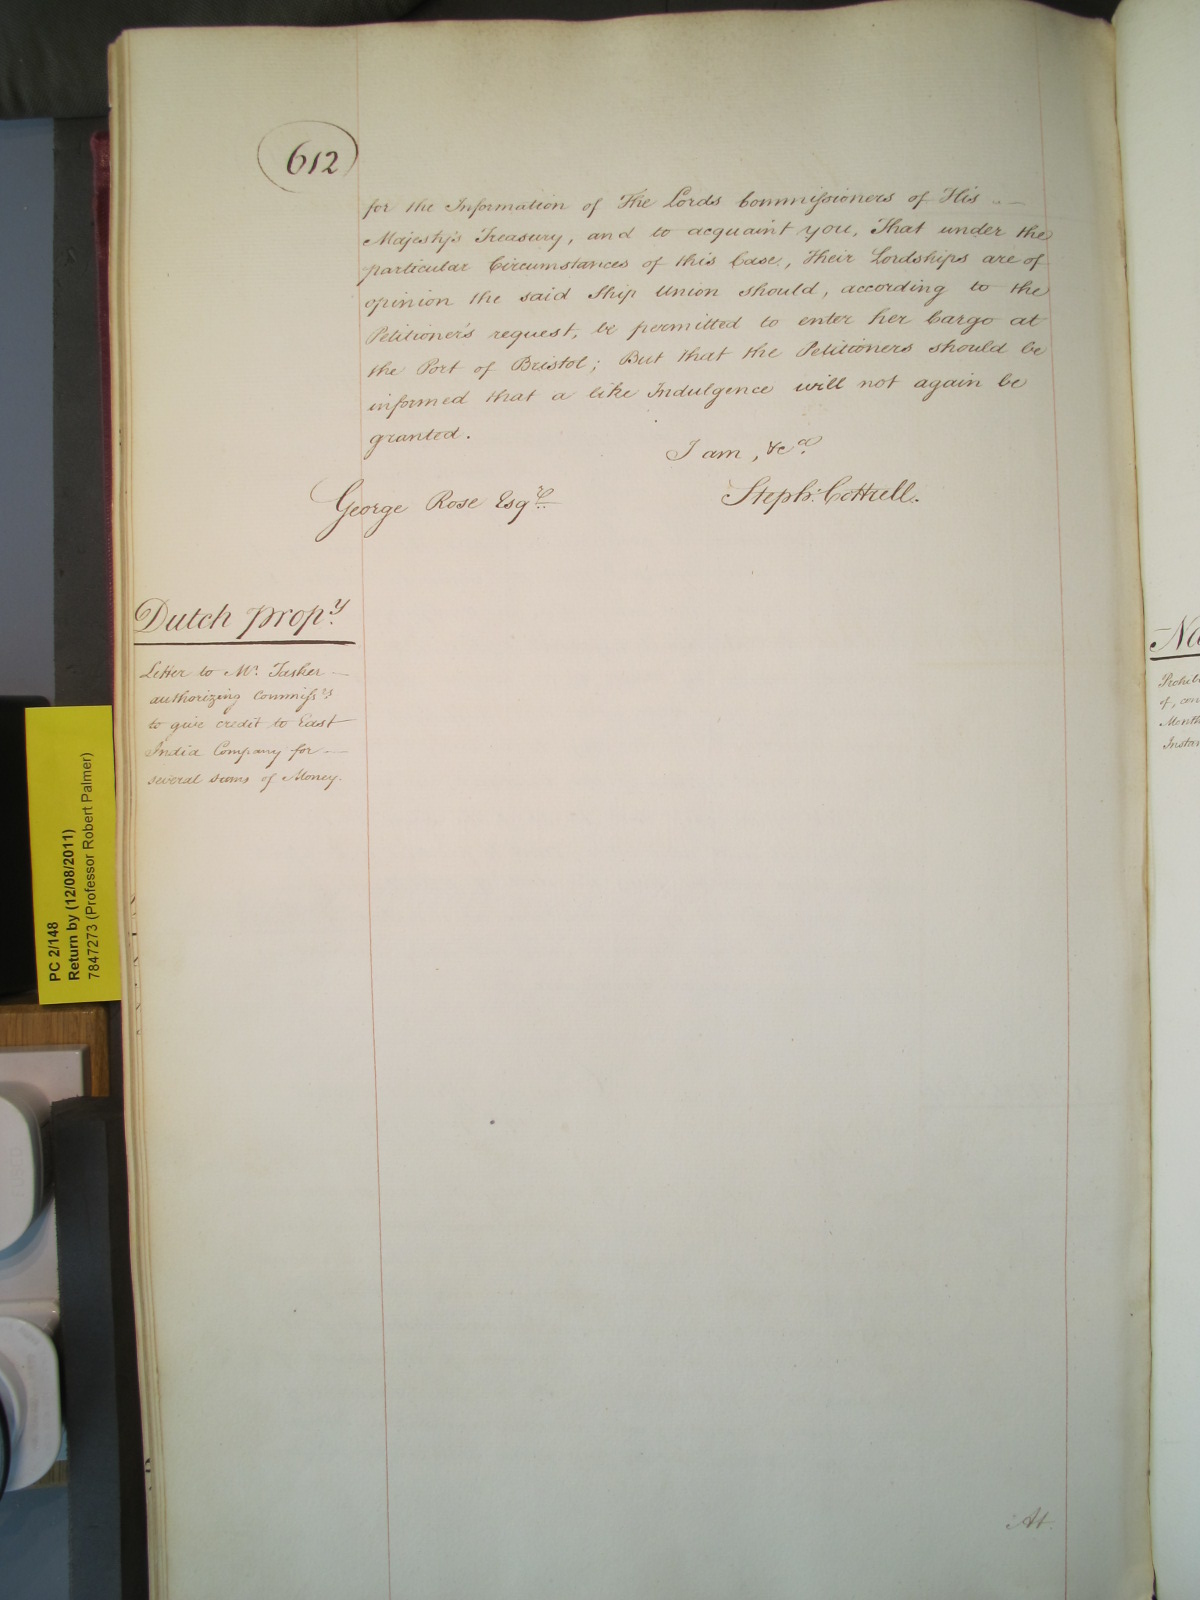 612
for the Information of The Lords Commissioners of His
Majesty's Treasury, and to acquaint you, That under the
particular Circumstances of this Case, Their Lordships are of
opinion the said Ship Union should, according to the
Petitioner's request, be permitted to enter her Cargo at
the Port of Bristol; But that the Petitioners should be
informed that a like Indulgence will not again be
granted.
I am, &ca
George Rose Esqre
Steph: Cottrell.
Dutch Propy
Letter to Mr. Tasker
authorizing Commissrs
to give credit to East
India Company for
several sums of Money.
At
PC 2/148
Return by (12/08/2011)
7847273 (Professor Robert Palmer)